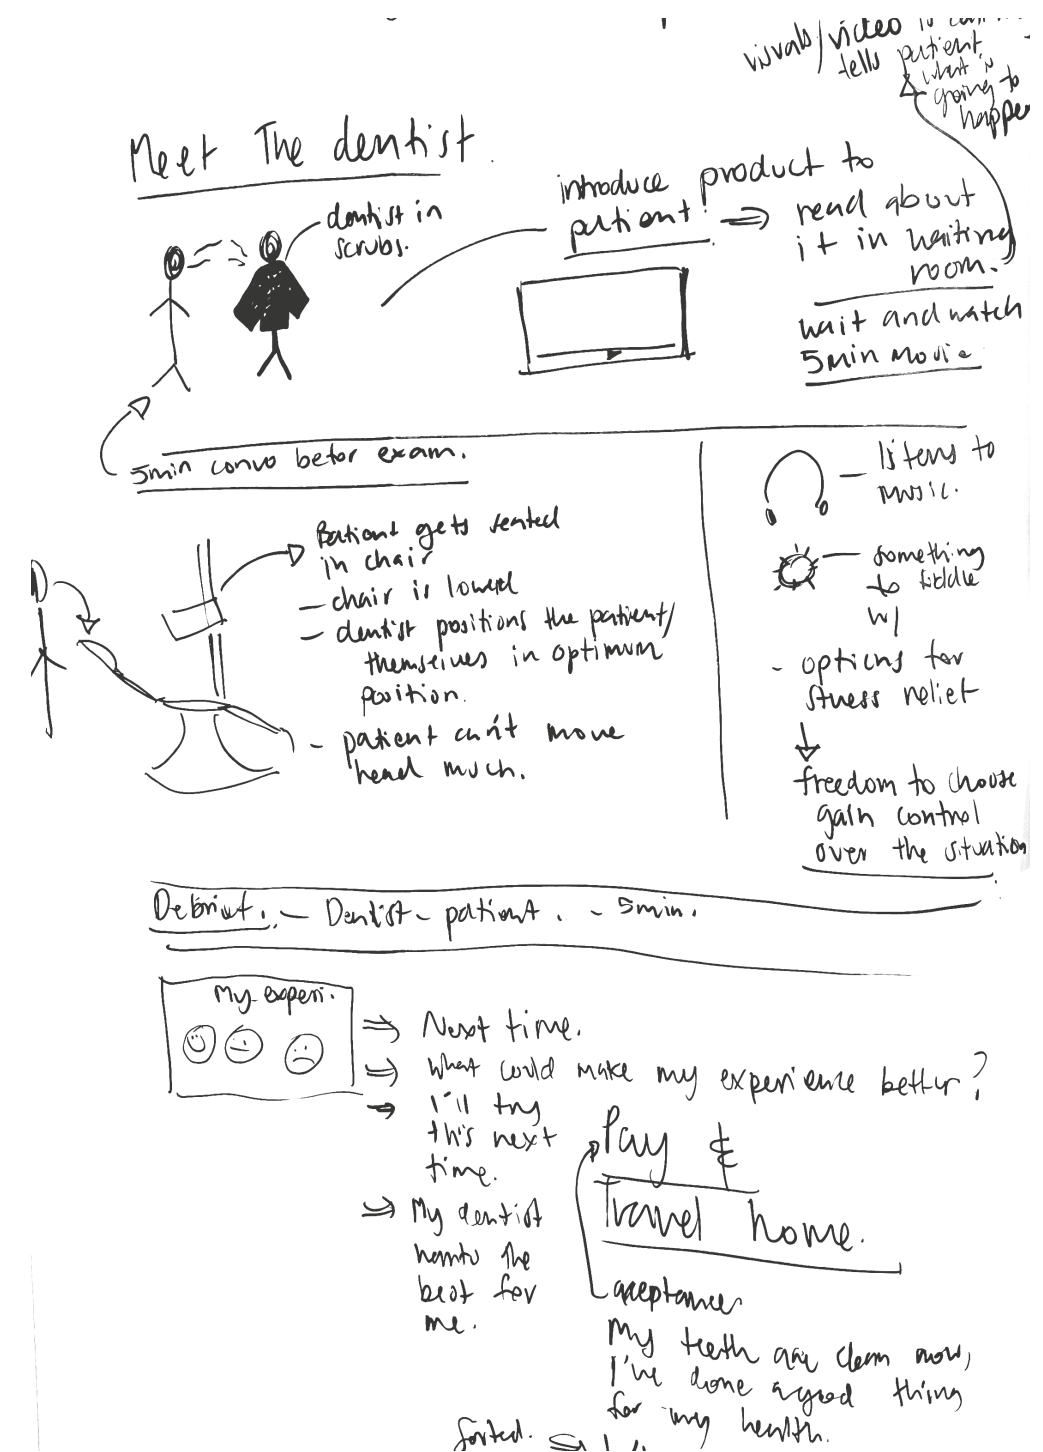 visuals/video
tells patient
what is
going to
happen
Meet The dentist.
dentist in
scrubs.
introduce product to
patient!
read about
it in waiting
room.
wait and watch
5min movie
5min convo befor exam.
Patient gets seated
in chair
- chair is lowerd
- dentist positions the patient/
themselves in optimum
position.
- patient can't move
head much.
listens to
music.
something
to fiddle
w/
- options for
stress relief
freedom to choose
gain control
over the situation
Debrief. - Dentist - patient. - 5min.
My experi.
Next time.
What could make my experience better?
I'll try
this next
time.
My dentist
wants the
best for
me.
Pay &
Travel home.
acceptance
My teeth are clean now,
I've done a good thing
for my health.